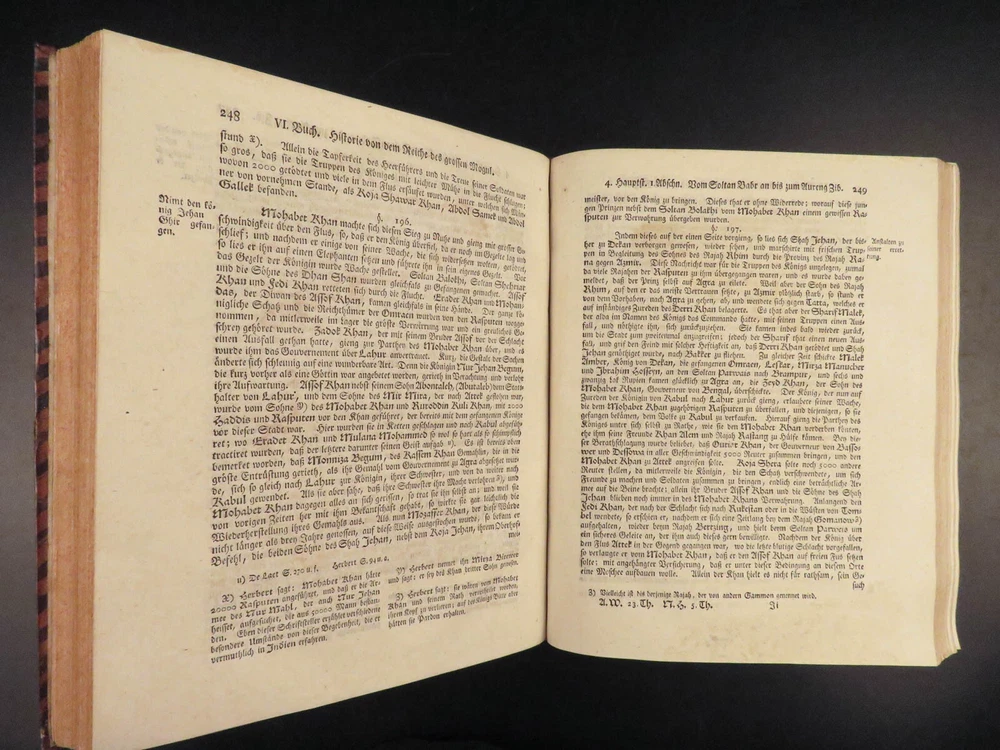 248 VI. Buch. Historie von dem Reiche des grossen Mogul.
stund x). Allein die Tapferkeit des Heerführers und die Treue seiner Soldaten war
so gros, daß sie die Truppen des Königes mit leichter Mühe in die Flucht schlugen;
wovon 2000 getödtet und viele in dem Flus ersäufet wurden, unter welchen sich Män-
ner von vornehmen Stande, als Koja Shawar Khan, Abdol Samek und Abdol
Gallek befanden.
§. 196.
Nimt den kö-
nig Jehan
Ghir gefan-
gen.
Mohabet Khan machte sich diesen Sieg zu Nutze und gieng mit grosser Ge-
schwindigkeit über den Flus, so, daß er den König überfiel, da er noch im Gezelte lag und
schlief; und nachdem er einige von seiner Wache, die sich widersetzen wolten, getödtet,
so lies er ihn auf einen Elephanten setzen und führete ihn in sein eigenes Gezelt. Vor
das Gezelt der Königin wurde Wache gestellet. Soltan Bolokhi, Soltan Sheheriar
und die Söhne des Dhan Shan wurden gleichfals zu Gefangenen gemachet. Assof
Khan und Jedi Khan retteten sich durch die Flucht. Erader Khan und Mohani-
das, der Diwan des Assof Khan, kamen gleichfals in seine Hände. Der ganze kö-
nigliche Schatz und die Reichthümer der Omraen wurden von den Rasputen wegge-
nommen, da mitlerweile im Lager die gröste Verwirrung war und ein greuliches Ge-
schrey gehöret wurde. Zadok Khan, der mit seinem Bruder Assof vor der Schlacht
einen Ausfall gethan hatte, gieng zur Parthey des Mohabet Khan über, und es
wurde ihm das Gouvernement über Lahur anvertrauet. Kurz, die Gestalt der Sachen
änderte sich schleunig auf eine wunderbare Art. Denn die Königin Nur Jehan Begum,
die kurz vorher als eine Göttin war angebetet worden, gerieth in Verachtung und verlohr
ihre Aufwartung. Assof Khan nebst seinem Sohn Abontaleb, (Abutaleb) dem Stat-
halter von Lahur, und dem Sohne des Mir Mira, der nach Attek geflohen war,
wurde vom Sohne y) des Mohabet Khan und Ruroddin Kuli Khan, mit 2000
Haddis und Rasputen vor den Khan geführet, der bereits mit dem gefangenen Könige
vor dieser Stadt war. Hier wurden sie in Ketten geschlagen und nach Kabul abgefüh-
ret; wo Erader Khan und Mulana Mohammed so wol so hart als so schimpflich
tractiret wurden, daß der letztere darunter seinen Geist aufgab z). Es ist bereits oben
bemerket worden, daß Monniza Begum, des Kassem Khan Gemahlin, die in die
gröste Entrüstung gerieth, als ihr Gemahl vom Gouvernement zu Agra abgesetzt wur-
de, sich so gleich nach Lahur zur Königin, ihrer Schwester, und von da weiter nach
Kabul gewendet. Als sie aber sahe, daß ihre Schwester ihre Macht verlohren, und
Mohabet Khan dagegen alles an sich gerissen, so trat sie ihn selbst an; und weil sie
von vorigen Zeiten her mit ihm Bekantschaft gehabt, so wirkte sie gar leichtlich die
Wiederherstellung ihres Gemahls aus. Als nun Mozaffer Khan, der diese Würde
nicht länger als drey Jahre genossen, auf diese Weise ausgestochen wurde, so bekam er
Befehl, die beiden Söhne des Shah Jehan, nebst dem Koja Jehan, ihrem Oberhof-
mei-
u) De Laet S. 270 u. f. Herbert S. 94 u. s.
x) Herbert sagt: Mohabet Khan hätte
20000 Rasputen angeführet, und daß er die Ar-
mee des Nur Mahl, der auch Nur Jehan
heisset, aufgesuchet, die aus 50000 Mann bestun-
den. Eben dieser Schriftsteller erzählet verschiedene
besondere Umstände von dieser Begebenheit, die er
vermuthlich in Indien erfahren.
y) Herbert nennet ihn Mirza Byrover
und sagt: er sey des Khan dritter Sohn gewesen.
z) Herbert sagt: sie wären vom Mohabet
Khan und seinem Rath verurtheilet worden,
ihren Kopf zu verlieren: auf des Königs Bitte aber
hätten sie Pardon erhalten.
4. Hauptst. 1. Abschn. Vom Soltan Babr an bis zum Aureng Zib. 249
meister, vor den König zu bringen. Dieses that er ohne Widerrede: worauf diese jun-
gen Prinzen nebst dem Soltan Bolakhi vom Mohabet Khan einem gewissen Ra-
sputen zur Verwahrung übergeben wurden.
§. 197.
Anstalten zu
seiner erret-
tung.
Indem dieses auf der einen Seite vorgieng, so lies sich Shah Jehan, der bis-
her zu Dekan verborgen gewesen, wieder sehen, und marschirte mit frischen Trup-
pen in Begleitung des Sohnes des Rajah Rhim durch die Provinz des Rajah Ra-
na gegen Azmir. Diese Nachricht war für die Truppen des Königs ungelegen, zumal
da viele Rajahen der Rasputen zu ihm übergegangen waren, und es wurde daher ge-
meldet, daß der Prinz selbst auf Agra zu eilete. Weil aber der Sohn des Rajah
Rhim, auf den er das meiste Vertrauen setzte, zu Azmir plötzlich starb, so stand er
von dem Vorhaben, nach Agra zu gehen, ab, und wendete sich gegen Tatta, welches er
auf inständiges Zureden des Derri Khan belagerte. Es that aber der Sharif Malek,
der alda im Namen des Königs das Commando hatte, mit seinen Truppen einen Aus-
fall, und nöthigte ihn, sich zurückzuziehen. Sie kamen indes bald wieder zurück,
um die Stadt zum zweitenmal anzugreifen; jedoch der Sharif that einen neuen Aus-
fall, und grif den Feind mit solcher Heftigkeit an, daß Derri Khan getödtet und Shah
Jehan genöthiget wurde, nach Bakker zu fliehen. Zu gleicher Zeit schickte Malek
Amber, König von Dekan, die gefangenen Omraen, Leskar, Mirza Manucher
und Ibrahim Hosseyn, an den Soltan Parwais nach Brampur, und sechs und
zwanzig lak Rupien kamen glücklich zu Agra an, die Zeyd Khan, der Sohn des
Mohabet Khan, Gouverneur von Bengal, überschickte. Der König, der nun auf
Zureden der Königin von Kabul nach Lahur zurück gieng, erlaubete seiner Wache,
die dem Mohabet Khan zugehörigen Rasputen zu überfallen, und diejenigen, so sie
gefangen bekämen, dem Volke zu Kabul zu verkaufen. Hierauf gieng die Parthey des
Königes unter sich selbst zu Rathe, wie sie den Mohabet Khan verderben könten,
ehe ihm seine Freunde Khan Alem und Rajah Rastang zu Hülfe kämen. Bey die-
ser Berathschlagung wurde beliebet, daß Ouriar Khan, der Gouverneur von Basso-
wer und Dessowa in aller Geschwindigkeit 5000 Reuter zusammen bringen, und den
Mohabet Khan zu Attek angreifen solte. Koja Shera solte noch 5000 andere
Reuter stellen, da mitlerweile die Königin, die den Schah verschwendete, um sich
Freunde zu machen und Soldaten zusammen zu bringen, endlich eine beträchtliche Ar-
mee auf die Beine brachte; allein ihr Bruder Assof Khan und die Söhne des Shah
Jehan blieben noch immer in Mohabet Khans Verwahrung. Anlangend den
Jedi Khan, der nach der Schlacht sich nach Rukestan oder in die Wüsten von Tom-
bel wendete, so erschien er, nachdem er sich eine Zeitlang bey dem Rajah Gomanow 3)
aufgehalten, wieder beym Rajah Bertzing, und hielt beym Soltan Parweis um
ein sicheres Geleite an, der ihm auch dieses gern bewilligte. Nachdem der König über
den Flus Attek in der Gegend gegangen war, wo die letzte blutige Schlacht vorgefallen,
so verlangte er vom Mohabet Khan, daß er den Assof Khan auf freien Fus setzen
solte: mit angehängter Versicherung, daß er unter dieser Bedingung an diesem Orte
eine Meschee aufbauen wolle. Allein der Khan hielt es nicht für rathsam, sein Ge-
such
3) Vielleicht ist dis derjenige Rajah, der von andern Gammen genennet wird.
A. W. 23. Th. N. H. 5. Th. Ji